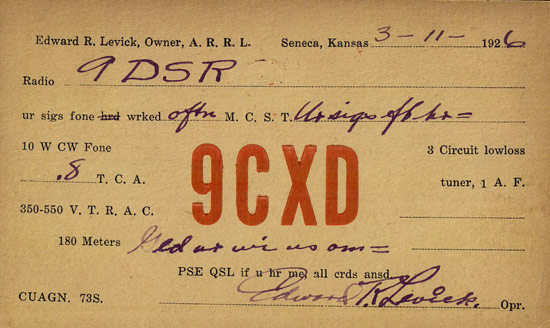 Edward R. Levick, Owner, A. R. R. L. Seneca, Kansas 3-11- 1926
Radio 9DSR
ur sigs fone hrd wrked oftn M. C. S. T. Ur sigs hr =
10 W CW Fone 3 Circuit lowloss
.8 T. C. A. 9CXD tuner, 1 A. F.
350-550 V. T. R. A. C.
180 Meters Gld om =
PSE QSL if u hr me, all crds ansd.
CUAGN. 73S. Edward R. Levick. Opr.